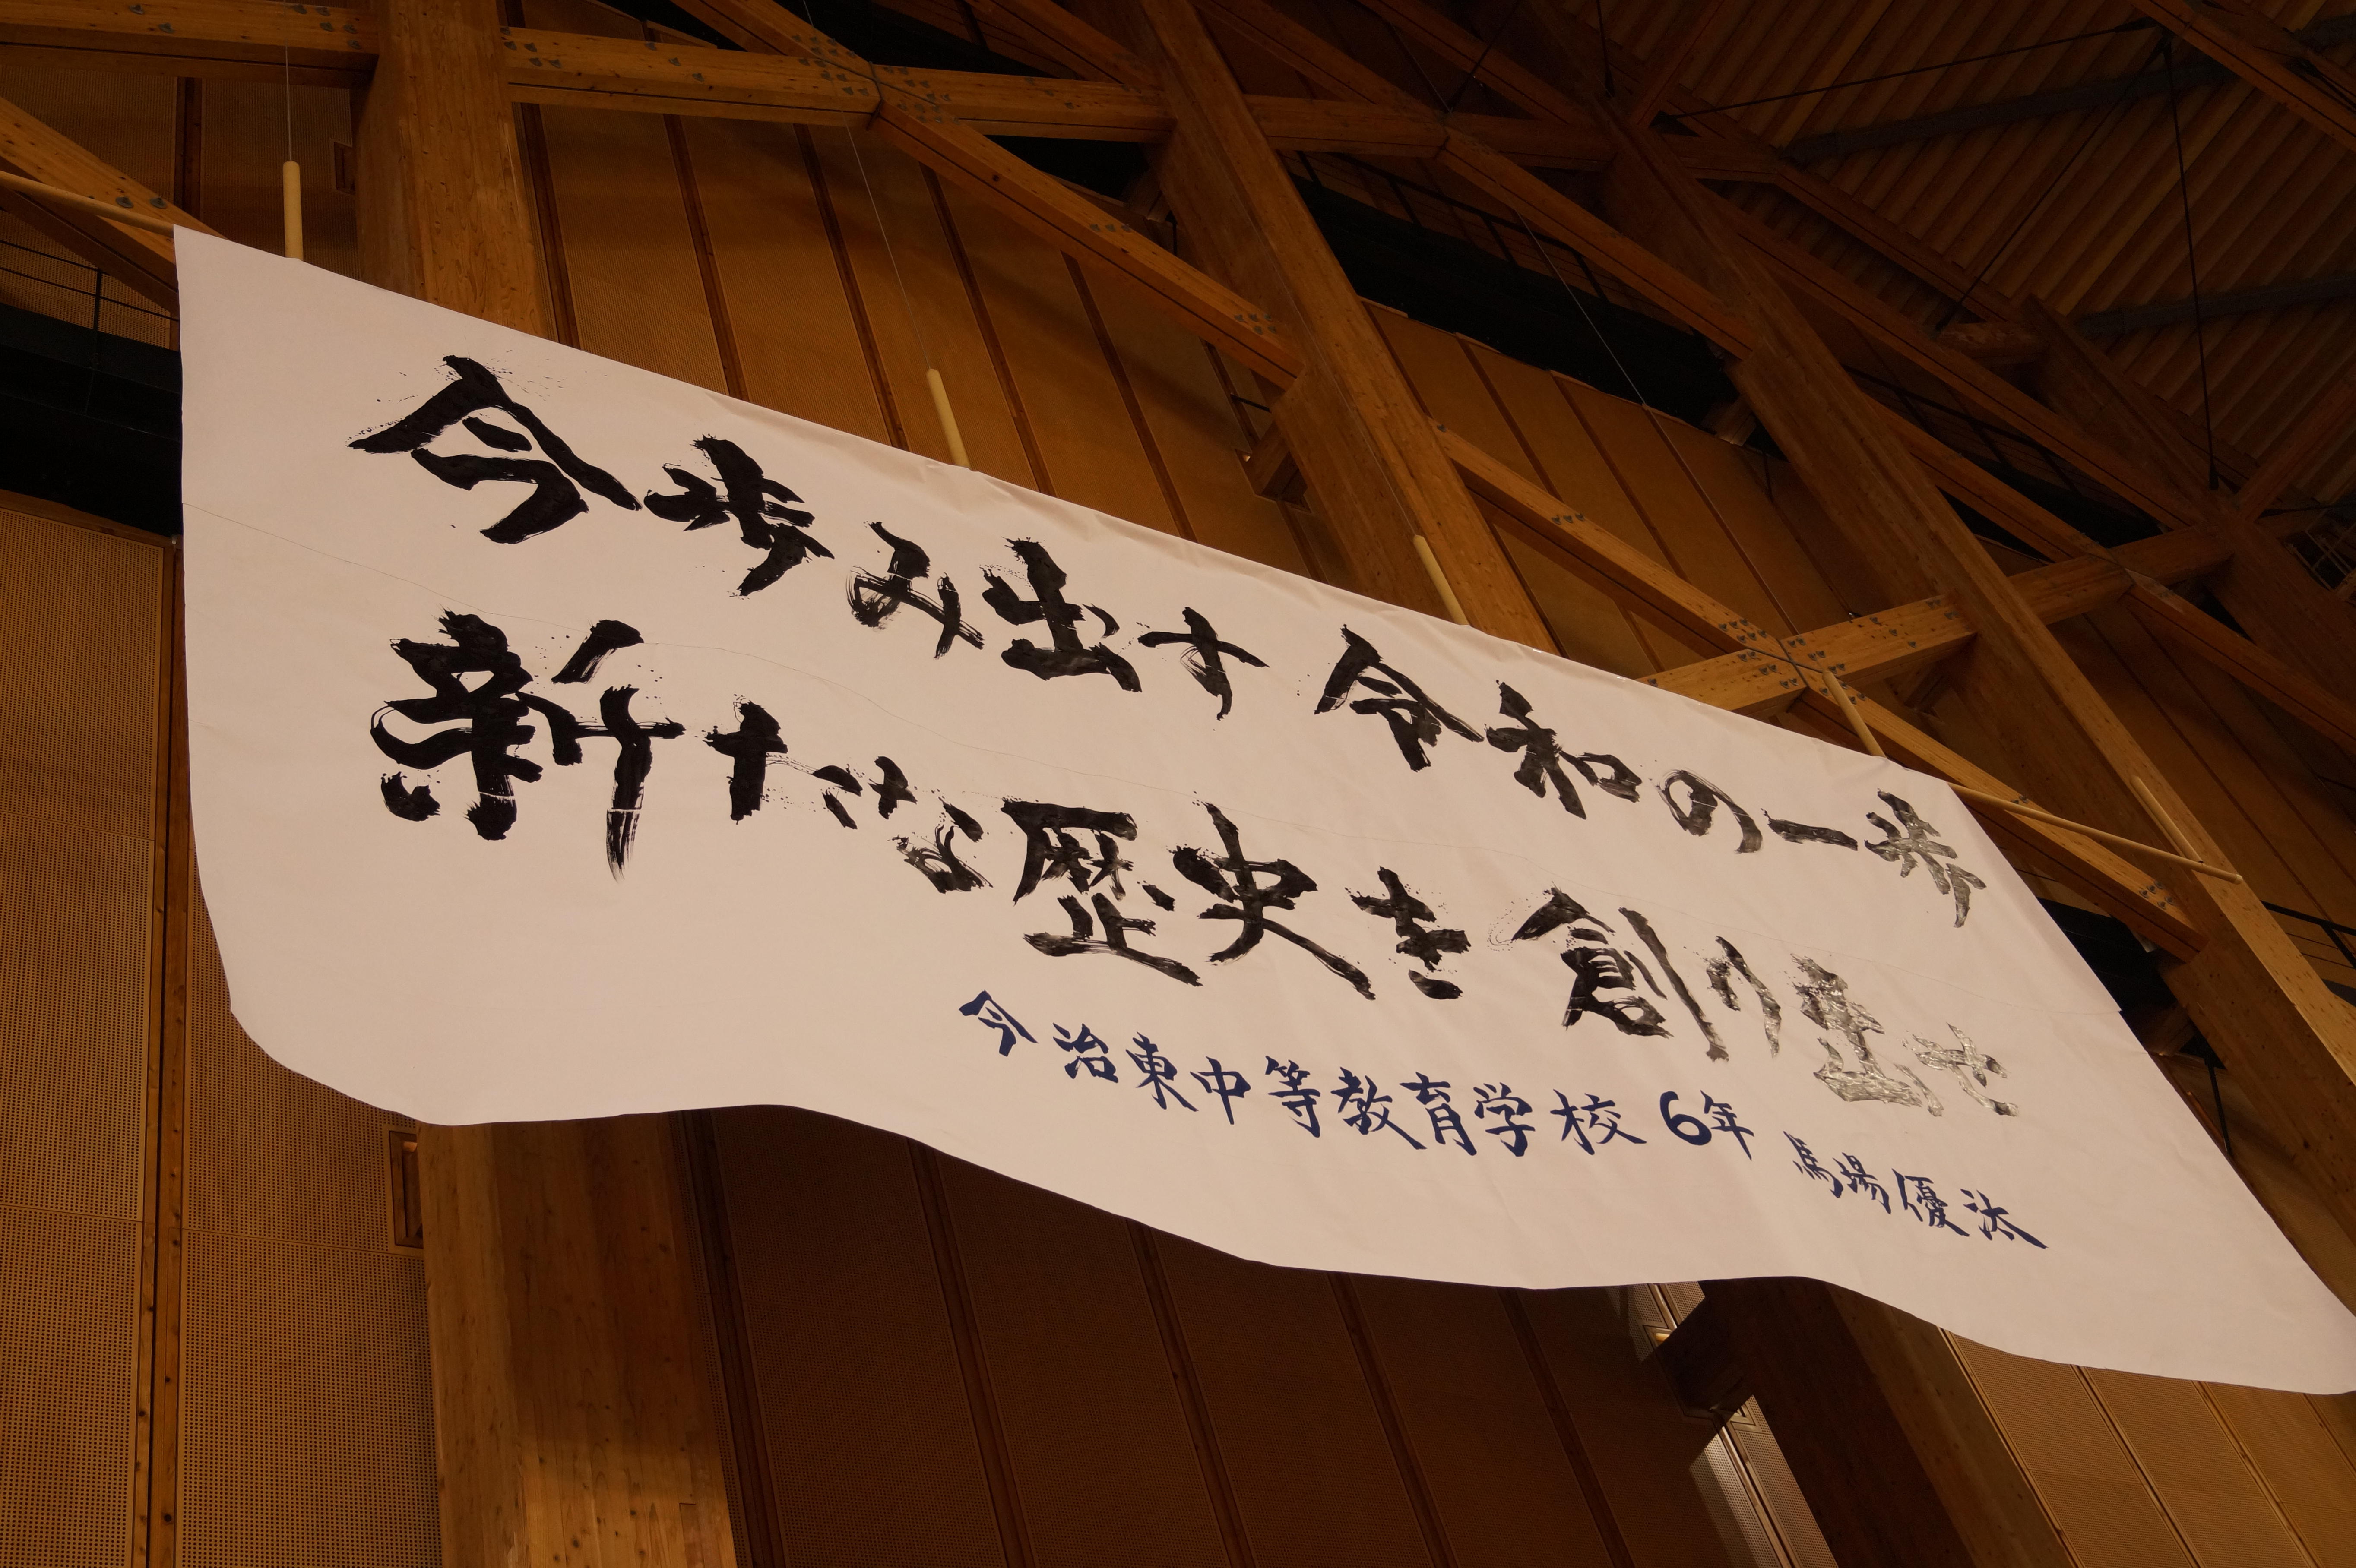 今歩み出す 令和の一歩
新たな歴史を創り出せ
今治東中等教育学校 6年 馬場優汰